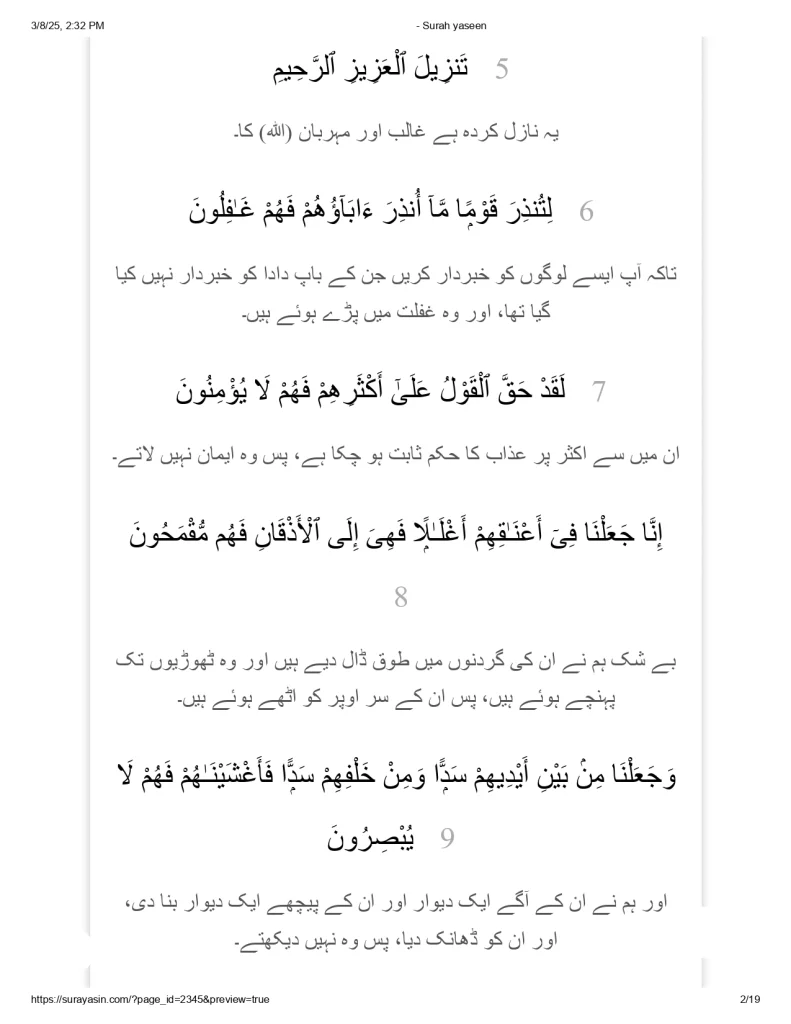 3/8/25, 2:32 PM - Surah yaseen
تَنزِيلَ ٱلْعَزِيزِ ٱلرَّحِيمِ 5
یہ نازل کردہ ہے غالب اور مہربان (اللہ) کا۔
لِتُنذِرَ قَوْمًۭا مَّآ أُنذِرَ ءَابَآؤُهُمْ فَهُمْ غَـٰفِلُونَ 6
تاکہ آپ ایسے لوگوں کو خبردار کریں جن کے باپ دادا کو خبردار نہیں کیا
گیا تھا، اور وہ غفلت میں پڑے ہوئے ہیں۔
لَقَدْ حَقَّ ٱلْقَوْلُ عَلَىٰٓ أَكْثَرِهِمْ فَهُمْ لَا يُؤْمِنُونَ 7
ان میں سے اکثر پر عذاب کا حکم ثابت ہو چکا ہے، پس وہ ایمان نہیں لاتے۔
إِنَّا جَعَلْنَا فِىٓ أَعْنَـٰقِهِمْ أَغْلَـٰلًۭا فَهِىَ إِلَى ٱلْأَذْقَانِ فَهُم مُّقْمَحُونَ
8
بے شک ہم نے ان کی گردنوں میں طوق ڈال دیے ہیں اور وہ ٹھوڑیوں تک
پہنچے ہوئے ہیں، پس ان کے سر اوپر کو اٹھے ہوئے ہیں۔
وَجَعَلْنَا مِنۢ بَيْنِ أَيْدِيهِمْ سَدًّۭا وَمِنْ خَلْفِهِمْ سَدًّۭا فَأَغْشَيْنَـٰهُمْ فَهُمْ لَا
يُبْصِرُونَ 9
اور ہم نے ان کے آگے ایک دیوار اور ان کے پیچھے ایک دیوار بنا دی،
اور ان کو ڈھانک دیا، پس وہ نہیں دیکھتے۔
https://surayasin.com/?page_id=2345&preview=true 2/19